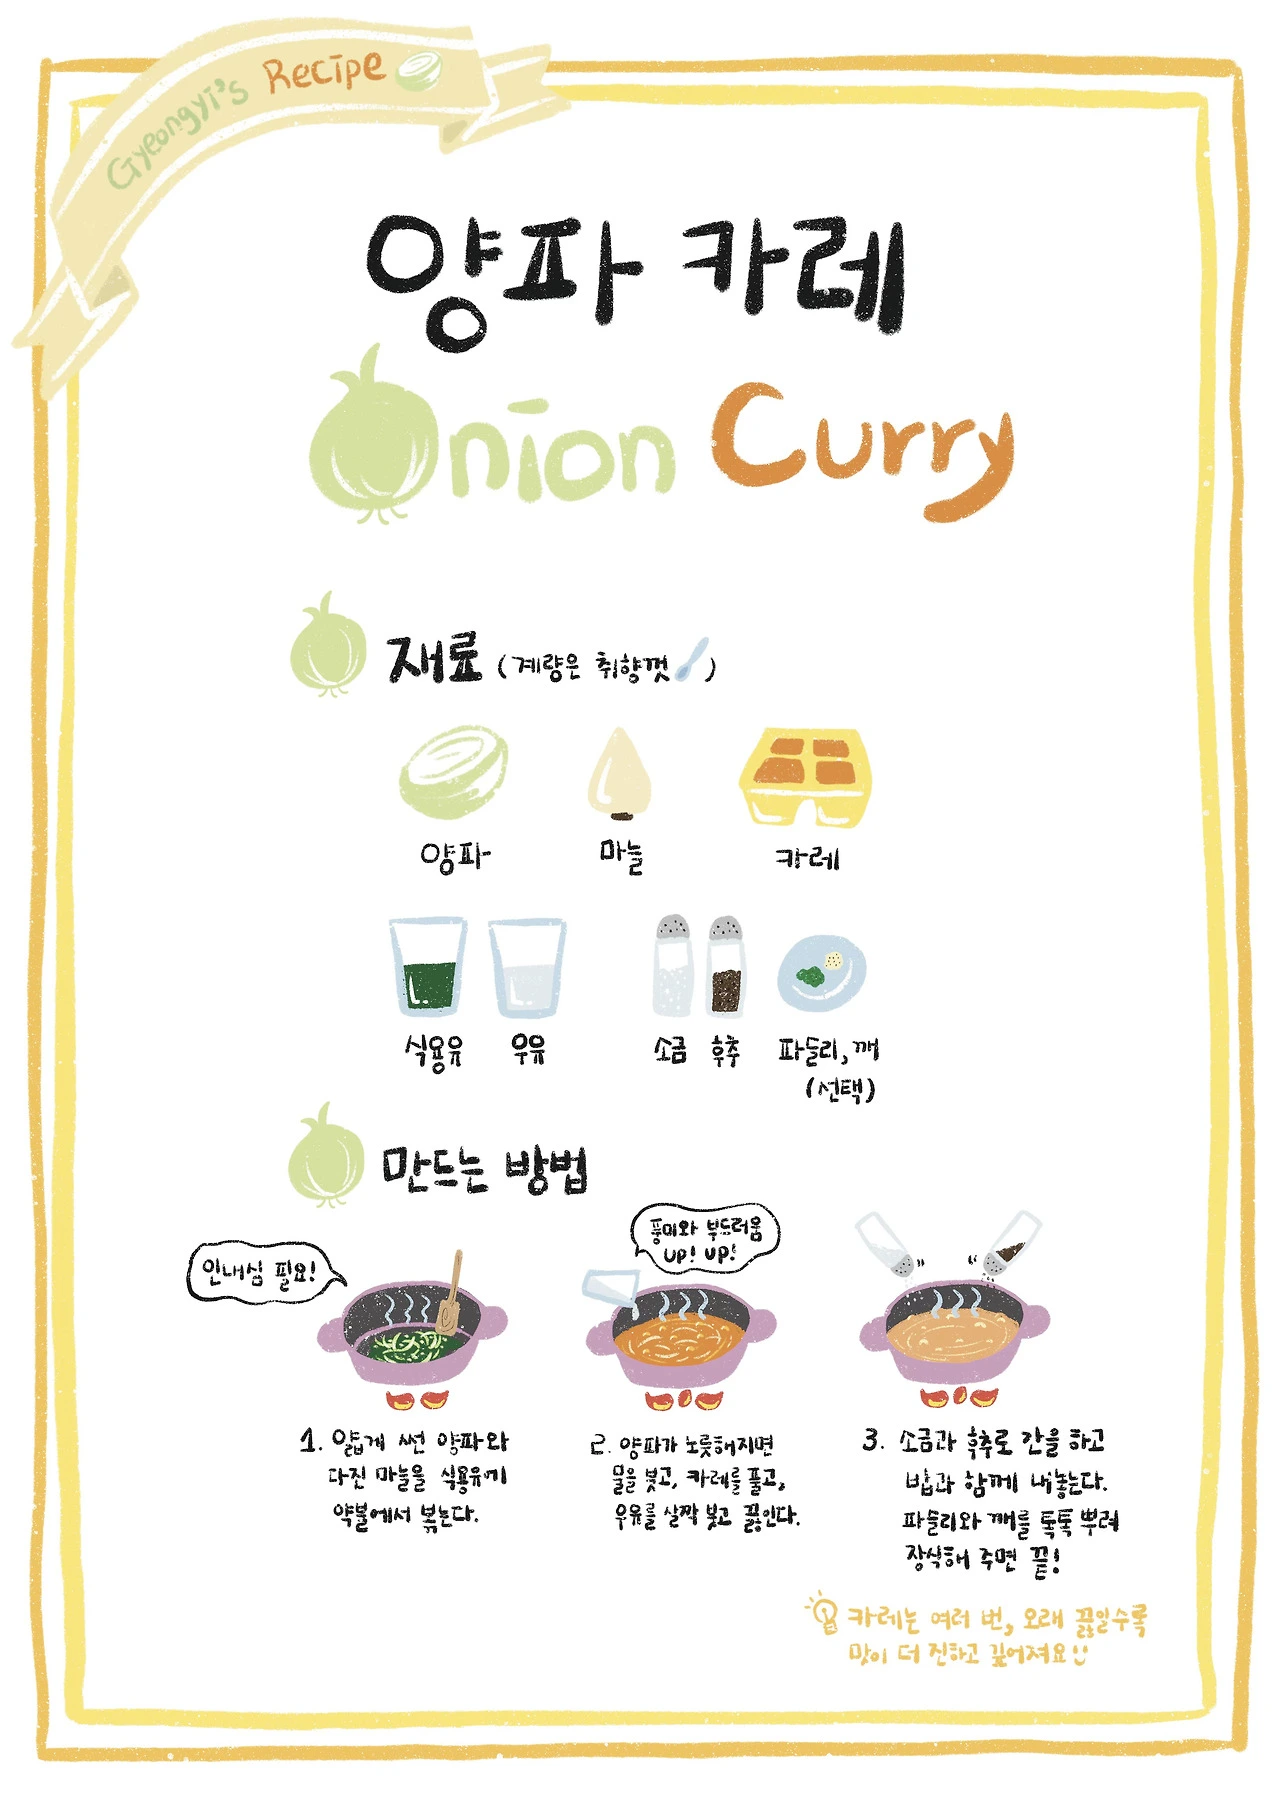 Gyeongyi's Recipe
양파 카레
Onion Curry
재료 (계량은 취향껏)
양파 마늘 카레
식용유 우유 소금 후추 파슬리, 깨
(선택)
만드는 방법
인내심 필요!
풍미와 부드러움
UP! UP!
1. 얇게 썬 양파와
다진 마늘을 식용유에
약불에서 볶는다.
2. 양파가 노릇해지면
물을 붓고, 카레를 풀고,
우유를 살짝 붓고 끓인다.
3. 소금과 후추로 간을 하고
밥과 함께 내놓는다.
파슬리와 깨를 톡톡 뿌려
장식해 주면 끝!
카레는 여러 번, 오래 끓일수록
맛이 더 진하고 깊어져요